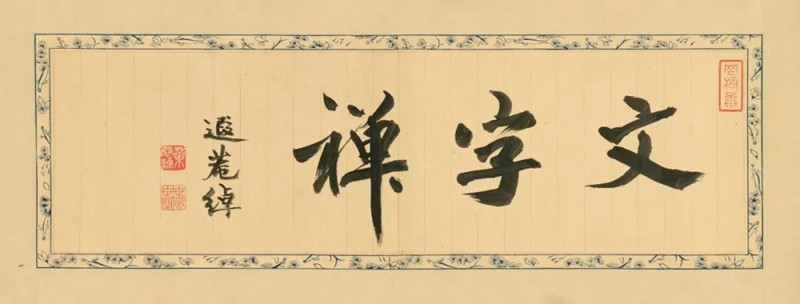 文字禅
遐菴绰